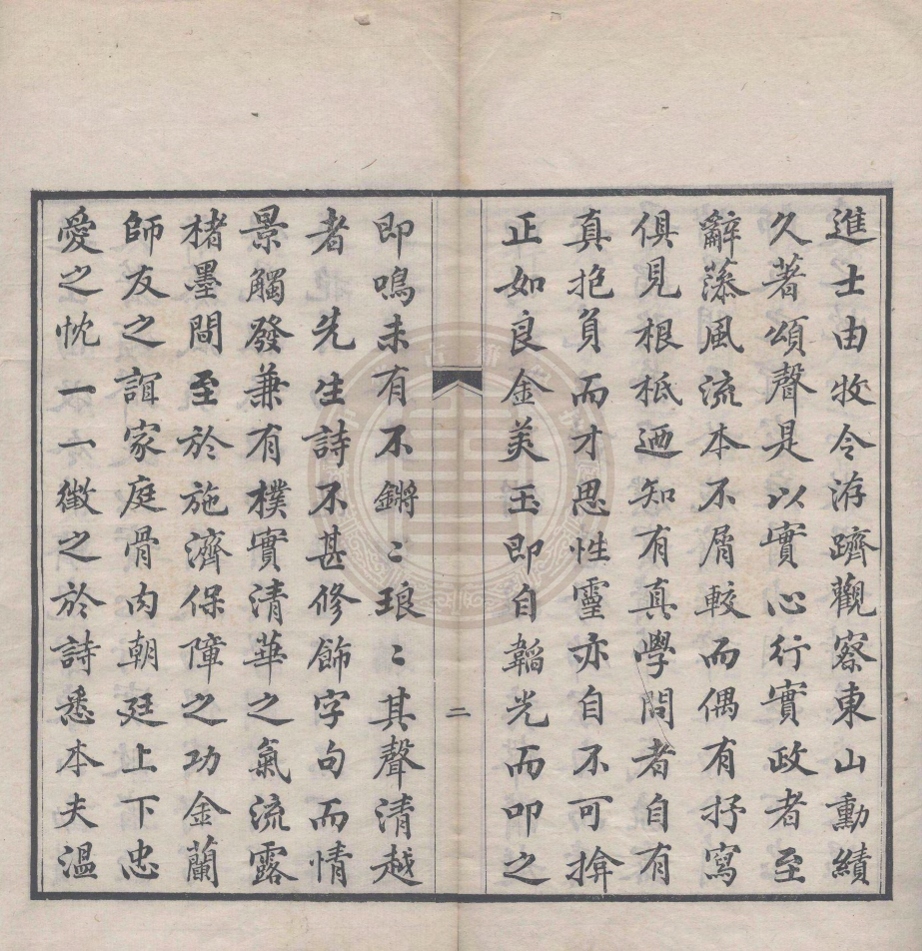 進士由牧令洊躋觀察東山勳績
久著頌聲是以實心行實政者至
辭藻風流本不屑較而偶有抒寫
俱見根柢迺知有真學問者自有
真抱負而才思性靈亦自不可揜
正如良金美玉即自韜光而叩之
二
即鳴未有不鏘〻琅〻其聲清越
者先生詩不甚修飾字句而情
景觸發兼有樸實清華之氣流露
楮墨間至於施濟保障之功金蘭
師友之誼家庭骨肉朝廷上下忠
愛之忱一一徵之於詩悉本夫溫